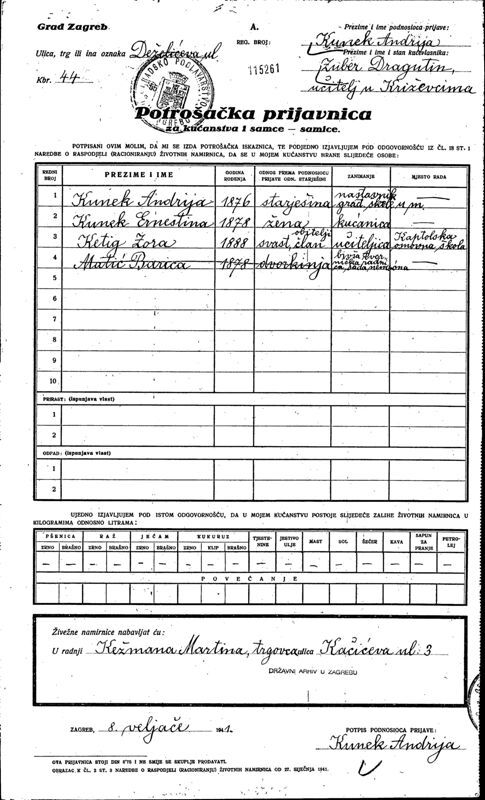 Grad Zagreb
A.
Prezime i ime podnosioca prijave:
Kunek Andrija
Ulica, trg ili ina oznaka Deželićeva ul.
REG. BROJ:
115261
Prezime i ime i stan kućevlasnika:
Žuber Dragutin,
učitelj u Križevcima
Kbr. 44
GRADSKO POGLAVARSTVO
Potrošačka prijavnica
za kućanstva i samce — samice.
POTPISANI OVIM MOLIM, DA MI SE IZDA POTROŠAČKA ISKAZNICA, TE PODJEDNO IZJAVLJUJEM POD ODGOVORNOŠĆU IZ ČL. 18 ST. 1
NAREDBE O RASPODJELI (RACIONIRANJU) ŽIVOTNIH NAMIRNICA, DA SE U MOJEM KUĆANSTVU HRANE SLIJEDEĆE OSOBE:
REDNI BROJ PREZIME I IME GODINA ROĐENJA ODNOS PREMA PODNOSIOCU PRIJAVE ODN. STARJEŠINI ZANIMANJE MJESTO RADA
1 Kunek Andrija 1876 starješina nastavnik grad. škole u m. —
2 Kunek Ernestina 1878 žena kućanica
3 Ketig Zora 1888 svast, član obitelji učiteljica Kaptolska osnovna škola
4 Matić Barica 1878 dvorkinja
5
6
7
8
9
10
PRIRAST: (ispunjava vlast)
1
2
OTPAD: (ispunjava vlast)
1
2
UJEDNO IZJAVLJUJEM POD ISTOM ODGOVORNOŠĆU, DA U MOJEM KUĆANSTVU POSTOJE SLIJEDEĆE ZALIHE ŽIVOTNIH NAMIRNICA U
KILOGRAMIMA ODNOSNO LITRAMA:
PŠENICA RAŽ JEČAM KUKURUZ TJESTENINE JESTIVO ULJE MAST SOL ŠEĆER KAVA SAPUN ZA PRANJE PETROLEJ
ZRNO BRAŠNO ZRNO BRAŠNO ZRNO BRAŠNO ZRNO KLIP BRAŠNO
— — — — — — — — — — — — — — — — —
POVEĆANJE
Živežne namirnice nabavljat ću:
U radnji Kežmana Martina, trgovca ulica Kačićeva ul: 3
DRŽAVNI ARHIV U ZAGREBU
ZAGREB, 8. veljače 1941.
POTPIS PODNOSIOCA PRIJAVE:
Kunek Andrija
OVA PRIJAVNICA STOJI DIN 0'75 I NE SMIJE SE SKUPLJE PRODAVATI.
OBRAZAC K ČL. 2 ST. 3 NAREDBE O RASPODJELI (RACIONIRANJU) ŽIVOTNIH NAMIRNICA OD 27. SIJEČNJA 1941.